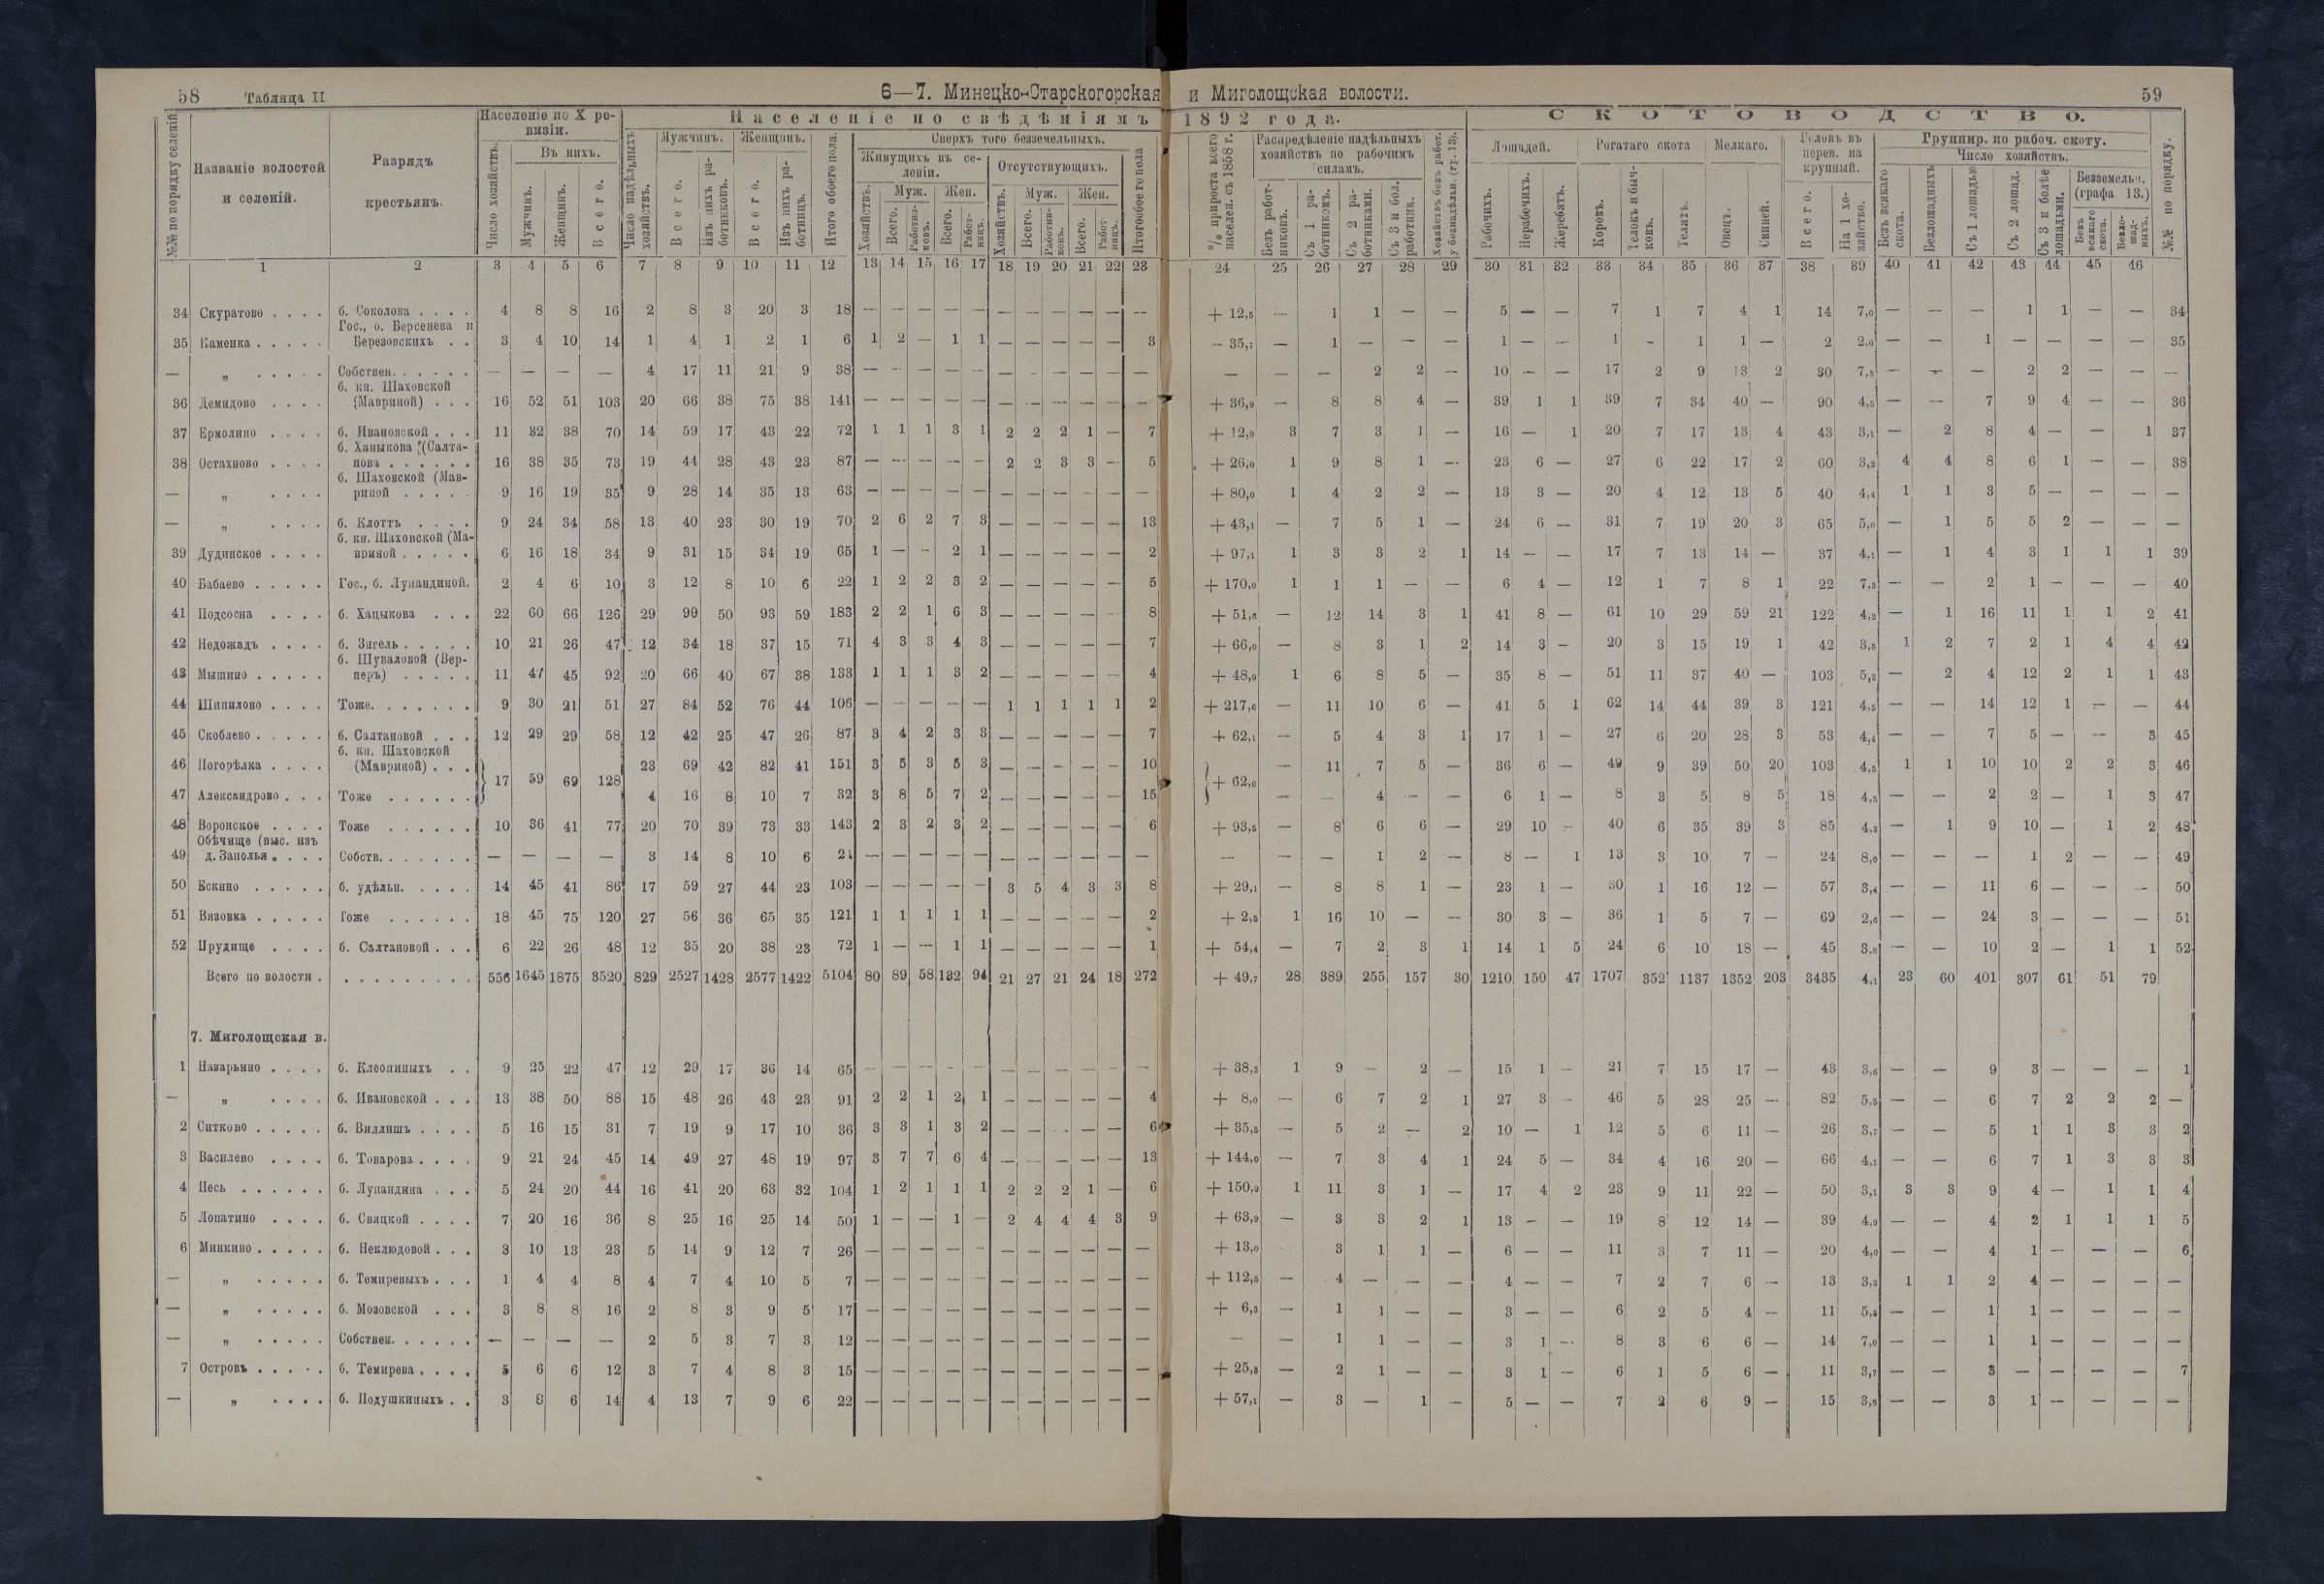 58 Таблица II 6—7. Минецко-Старскогорская и Миголощская волости. 59
№№ по порядку селеній
Названіе волостей и селеній.
Разрядъ крестьянъ.
Населеніе по X ревизіи.
Число хозяйствъ.
Въ нихъ.
Мужчинъ.
Женщинъ.
Всего.
Населеніе по свѣдѣніямъ 1892 года.
Число надѣльныхъ хозяйствъ.
Мужчинъ.
Всего.
Изъ нихъ работниковъ.
Женщинъ.
Всего.
Изъ нихъ работницъ.
Итого обоего пола.
Сверхъ того безземельныхъ.
Живущихъ въ селеніи.
Хозяйствъ.
Муж.
Всего.
Работниковъ.
Жен.
Всего.
Работницъ.
Отсутствующихъ.
Хозяйствъ.
Муж.
Всего.
Работниковъ.
Жен.
Всего.
Работницъ.
Итого обоего пола
% прироста всего населен. съ 1858 г.
Распредѣленіе надѣльныхъ хозяйствъ по рабочимъ силамъ.
Безъ работниковъ.
Съ 1 работникомъ.
Съ 2 работниками.
Съ 3 и бол. работник.
Хозяйствъ безъ работ. у безнадѣльн. (гр. 13).
СКОТОВОДСТВО.
Лошадей.
Рабочихъ.
Нерабочихъ.
Жеребятъ.
Рогатаго скота
Коровъ.
Телокъ и бычковъ.
Телятъ.
Мелкаго.
Овецъ.
Свиней.
Головъ въ перев. на крупный.
Всего.
На 1 хозяйство.
Группир. по рабоч. скоту.
Число хозяйствъ.
Безъ всякаго скота.
Безлошадныхъ
Съ 1 лошадью
Съ 2 лошад.
Съ 3 и болѣе лошадьми.
Безземельн. (графа 13.)
Безъ всякаго скота.
Безлошадныхъ.
№№ по порядку.
1 2 3 4 5 6 7 8 9 10 11 12 13 14 15 16 17 18 19 20 21 22 23 24 25 26 27 28 29 30 31 32 33 34 35 36 37 38 39 40 41 42 43 44 45 46
34 Скуратово . . . . б. Соколова . . . . 4 8 8 16 2 8 3 20 3 18 — — — — — — — — — — — + 12,5 — 1 1 — — 5 — — 7 1 7 4 1 14 7,0 — — — 1 1 — — 34
Гос., о. Берсенева и
35 Каменка . . . . . Березовскихъ . . 3 4 10 14 1 4 1 2 1 6 1 2 — 1 1 — — — — — 3 — 35,7 — 1 — — — 1 — — 1 - 1 1 — 2 2.0 — — 1 — — — — 35
— „ . . . . . Собствен. . . . . . — — — — 4 17 11 21 9 38 — — — — — — — — — — — — — — 2 2 — 10 — — 17 2 9 13 2 30 7,5 — — — 2 2 — — —
б. кн. Шаховской
36 Демидово . . . . (Мавриной) . . . 16 52 51 103 20 66 38 75 38 141 — — — — — — — — — — — + 36,9 — 8 8 4 — 39 1 1 39 7 34 40 — 90 4,5 — — 7 9 4 — — 36
37 Ермолино . . . . б. Ивановской . . . 11 32 38 70 14 59 17 43 22 72 1 1 1 3 1 2 2 2 1 — 7 + 12,9 3 7 3 1 — 16 — 1 20 7 17 13 4 43 3,1 — 2 8 4 — — 1 37
б. Ханыкова (Салта-
38 Остахново . . . . нова . . . . . . 16 38 35 73 19 44 28 43 23 87 — — — — — 2 2 3 3 — 5 + 26,0 1 9 8 1 — 23 6 — 27 6 22 17 2 60 3,2 4 4 8 6 1 — — 38
б. Шаховской (Мав-
— „ . . . . риной . . . . . 9 16 19 35 9 28 14 35 13 63 — — — — — — — — — — — + 80,0 1 4 2 2 — 13 3 — 20 4 12 13 5 40 4,4 1 1 3 5 — — — —
— „ . . . . б. Клоттъ . . . . 9 24 34 58 13 40 23 30 19 70 2 6 2 7 3 — — — — — 13 + 43,1 — 7 5 1 — 24 6 — 31 7 19 20 3 65 5,0 — 1 5 5 2 — — —
б. кн. Шаховской (Ма-
39 Дудинское . . . . вриной . . . . . 6 16 18 34 9 31 15 34 19 65 1 — — 2 1 — — — — — 2 + 97,1 1 3 3 2 1 14 — — 17 7 13 14 — 37 4,1 — 1 4 3 1 1 1 39
40 Бабаево . . . . . Гос., б. Лупандиной. 2 4 6 10 3 12 8 10 6 22 1 2 2 3 2 — — — — — 5 + 170,0 1 1 1 — — 6 4 — 12 1 7 8 1 22 7,3 — — 2 1 — — — 40
41 Подсосна . . . . б. Хацыкова . . . 22 60 66 126 29 99 50 93 59 183 2 2 1 6 3 — — — — — 8 + 51,6 — 12 14 3 1 41 8 — 61 10 29 59 21 122 4,2 — 1 16 11 1 1 2 41
42 Недожадъ . . . . б. Зигель . . . . . 10 21 26 47 12 34 18 37 15 71 4 3 3 4 3 — — — — — 7 + 66,0 — 8 3 1 2 14 3 — 20 3 15 19 1 42 3,5 1 2 7 2 1 4 4 42
б. Шуваловой (Вер-
43 Мышино . . . . . неръ) . . . . . 11 47 45 92 20 66 40 67 38 133 1 1 1 3 2 — — — — — 4 + 48,9 1 6 8 5 — 35 8 — 51 11 37 40 — 103 5,2 — 2 4 12 2 1 1 43
44 Шипилово . . . . Тоже. . . . . . . 9 30 21 51 27 84 52 76 44 106 — — — — — 1 1 1 1 1 2 + 217,6 — 11 10 6 — 41 5 1 62 14 44 39 3 121 4,5 — — 14 12 1 — — 44
45 Скоблево . . . . . б. Салтановой . . . 12 29 29 58 12 42 25 47 26 87 3 4 2 3 3 — — — — — 7 + 62,1 — 5 4 3 1 17 1 — 27 6 20 28 3 53 4,4 — — 7 5 — — 3 45
б. кн. Шаховской
46 Погорѣлка . . . . (Мавриной) . . . 23 69 42 82 41 151 3 5 3 5 3 — — — — — 10 — 11 7 5 — 36 6 — 49 9 39 50 20 103 4,5 1 1 10 10 2 2 3 46
} 17 59 69 128 } + 62,6
47 Александрово . . . Тоже . . . . . . 4 16 8 10 7 32 3 8 5 7 2 — — — — — 15 — — 4 — — 6 1 — 8 3 5 8 5 18 4,5 — — 2 2 — 1 3 47
48 Воронское . . . . Тоже . . . . . . 10 36 41 77 20 70 39 73 33 143 2 3 2 3 2 — — — — — 6 + 93,5 — 8 6 6 — 29 10 — 40 6 35 39 3 85 4,3 — 1 9 10 — 1 2 48
Обѣчище (выс. изъ
49 д. Заполья . . . . Собств. . . . . . . — — — — 3 14 8 10 6 24 — — — — — — — — — — — — — — 1 2 — 8 — 1 13 3 10 7 — 24 8,0 — — — 1 2 — — 49
50 Ескино . . . . . б. удѣльн. . . . . 14 45 41 86 17 59 27 44 23 103 — — — — — 3 5 4 3 3 8 + 29,1 — 8 8 1 — 23 1 — 30 1 16 12 — 57 3,4 — — 11 6 — — — 50
51 Вязовка . . . . . Тоже . . . . . . 18 45 75 120 27 56 36 65 35 121 1 1 1 1 1 — — — — — 2 + 2,5 1 16 10 — — 30 3 — 36 1 5 7 — 69 2,6 — — 24 3 — — — 51
52 Прудище . . . . б. Салтановой . . . 6 22 26 48 12 35 20 38 23 72 1 — — 1 1 — — — — — 1 + 54,4 — 7 2 3 1 14 1 5 24 6 10 18 — 45 3,8 — — 10 2 — 1 1 52
Всего по волости . . . . . . . . . . 556 1645 1875 3520 829 2527 1428 2577 1422 5104 80 89 58 132 94 21 27 21 24 18 272 + 49,7 28 389 255 157 30 1210 150 47 1707 352 1137 1352 203 3435 4,1 23 60 401 307 61 51 79
7. Миголощская в.
1 Назарьино . . . . б. Клеопиныхъ . . 9 25 22 47 12 29 17 36 14 65 — — — — — — — — — — — + 38,3 1 9 — 2 — 15 1 — 21 7 15 17 — 43 3,6 — — 9 3 — — — 1
— „ . . . . б. Ивановской . . . 13 38 50 88 15 48 26 43 23 91 2 2 1 2 1 — — — — — 4 + 8,0 — 6 7 2 1 27 3 - 46 5 28 25 — 82 5,5 — — 6 7 2 2 2 —
2 Ситково . . . . . б. Виллишъ . . . . 5 16 15 31 7 19 9 17 10 36 3 3 1 3 2 — — — — — 6 + 35,5 — 5 2 — 2 10 — 1 12 5 6 11 — 26 3,7 — — 5 1 1 3 3 2
3 Василево . . . . б. Товарова . . . . 9 21 24 45 14 49 27 48 19 97 3 7 7 6 4 — — — — — 13 + 144,0 — 7 3 4 1 24 5 — 34 4 16 20 — 66 4,1 — — 6 7 1 3 3 3
4 Песь . . . . . . б. Лупандина . . . 5 24 20 44 16 41 20 63 32 104 1 2 1 1 1 2 2 2 1 — 6 + 150,0 1 11 3 1 — 17 4 2 23 9 11 22 — 50 3,1 3 3 9 4 — 1 1 4
5 Лопатино . . . . б. Свяцкой . . . . 7 20 16 36 8 25 16 25 14 50 1 — — 1 — 2 4 4 4 3 9 + 63,9 — 3 3 2 1 13 — — 19 8 12 14 — 39 4,9 — — 4 2 1 1 1 5
6 Минкино . . . . . б. Неклюдовой . . . 3 10 13 23 5 14 9 12 7 26 — — — — — — — — — — — + 13,0 — 3 1 1 — 6 — — 11 3 7 11 — 20 4,0 — — 4 1 — — — 6
— „ . . . . . б. Темиревыхъ . . . 1 4 4 8 4 7 4 10 5 7 — — — — — — — — — — — + 112,5 — 4 — — — 4 — — 7 2 7 6 — 13 3,3 1 1 2 4 — — — —
— „ . . . . . б. Мозовской . . . 3 8 8 16 2 8 3 9 5 17 — — — — — — — — — — — + 6,3 — 1 1 — — 3 — — 6 2 5 4 — 11 5,5 — — 1 1 — — — —
— „ . . . . . Собствен. . . . . . — — — — 2 5 3 7 3 12 — — — — — — — — — — — — — 1 1 — — 3 1 — 8 3 6 6 — 14 7,0 — — 1 1 — — — —
7 Островъ . . . . . б. Темирева . . . . 5 6 6 12 3 7 4 8 3 15 — — — — — — — — — — — + 25,5 — 2 1 — — 3 1 — 6 1 5 6 — 11 3,7 — — 3 — — — — 7
— „ . . . . б. Подушкиныхъ . . 3 8 6 14 4 13 7 9 6 22 — — — — — — — — — — — + 57,1 — 3 — 1 — 5 — — 7 2 6 9 — 15 3,8 — — 3 1 — — — —